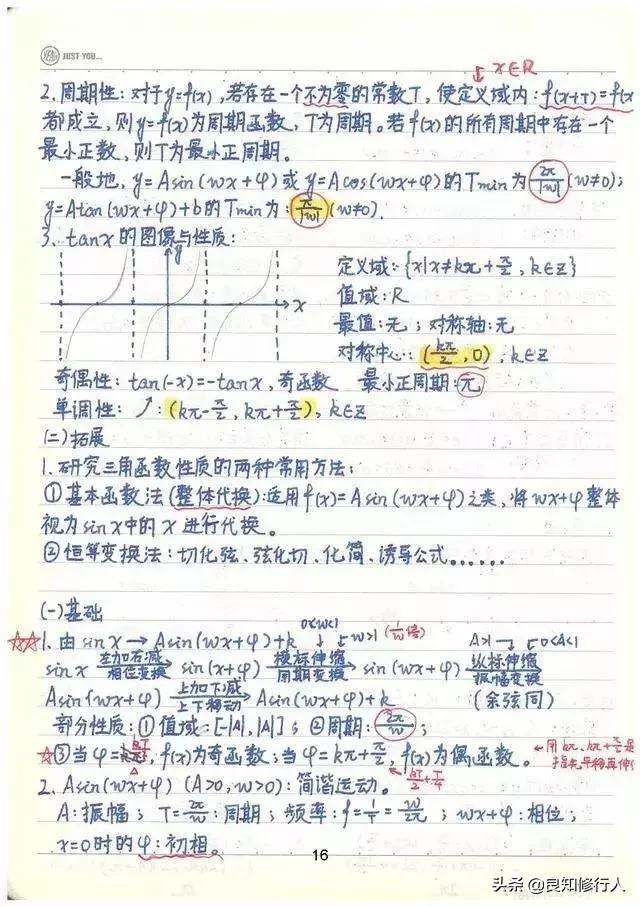 JUST YOU...
x∈R
2.周期性：对于y=f(x)，若存在一个不为零的常数T，使定义域内：f(x+T)=f(x)
都成立，则y=f(x)为周期函数，T为周期。若f(x)的所有周期中存在一个
最小正数，则T为最小正周期。
一般地，y=Asin(wx+φ)或y=Acos(wx+φ)的Tmin为2π/|w|(w≠0)；
y=Atan(wx+φ)+b的Tmin为：π/|w|(w≠0).
3.tanx的图像与性质：
y
x
定义域：{x|x≠kπ+π/2，k∈Z}
值域：R
最值：无；对称轴：无
对称中心：(kπ/2，0)，k∈Z
奇偶性：tan(-x)=-tanx，奇函数 最小正周期：π
单调性：↗：(kπ-π/2，kπ+π/2)，k∈Z
(二)拓展
1.研究三角函数性质的两种常用方法：
①基本函数法(整体代换)：运用f(x)=Asin(wx+φ)之类，将wx+φ整体
视为sinx中的x进行代换。
②恒等变换法：切化弦、弦化切、化简、诱导公式……
(一)基础
1.由sinx→Asin(wx+φ)+k 0<w<1 w>1(1/w倍) A>1 0<A<1
sinx 左加右减 相位变换 sin(x+φ) 横标伸缩 周期变换 sin(wx+φ) 纵标伸缩 振幅变换
Asin(wx+φ) 上加下减 上下移动 Asin(wx+φ)+k (余弦同)
部分性质：①值域：[-|A|，|A|]；②周期：2π/w；
③当φ=kπ，f(x)为奇函数；当φ=kπ+π/2，f(x)为偶函数。
用kπ、kπ+π/2是
kT/2+T/4
2.Asin(wx+φ)(A>0，w>0)：简谐运动。
A：振幅；T=2π/w：周期；频率：f=1/T=w/2π；wx+φ：相位；
x=0时的φ：初相。
16
头条@良知修行人